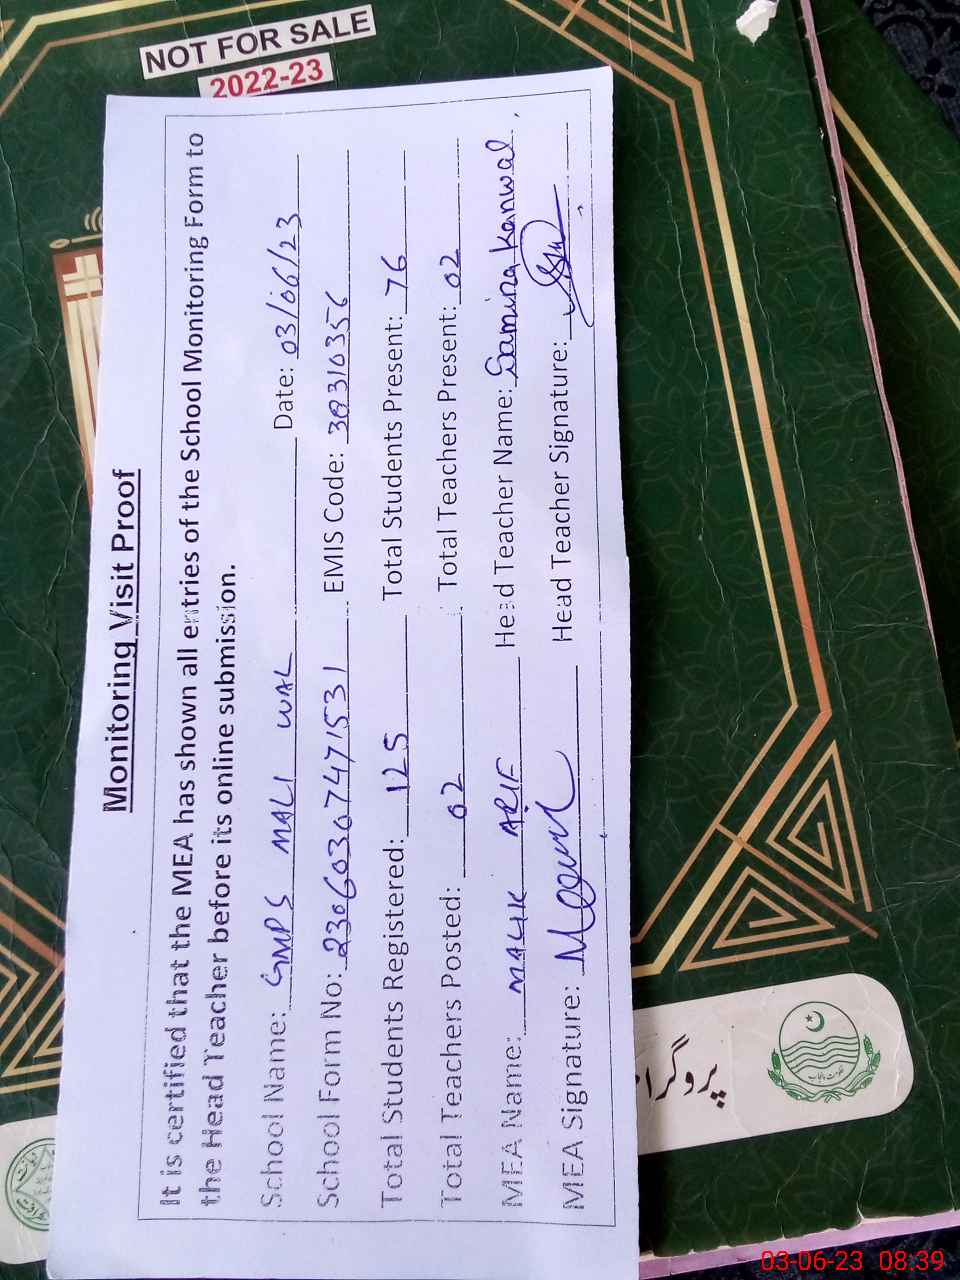 NOT FOR SALE
2022-23
Monitoring Visit Proof
It is certified that the MEA has shown all entries of the School Monitoring Form to
the Head Teacher before its online submission.
School Name: GMPS MALI WAL Date: 03/06/23
School Form No: 23060307471531 EMIS Code: 38310356
Total Students Registered: 125 Total Students Present: 76
Total Teachers Posted: 02 Total Teachers Present: 02
MEA Name: MALIK ARIF Head Teacher Name: Samina Kanwal,
MEA Signature: Head Teacher Signature:
حکومت پنجاب
03-06-23 08:39